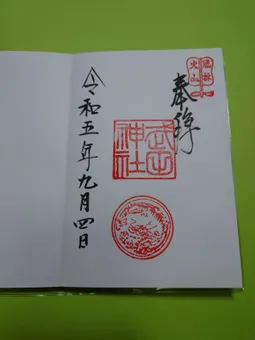 奉拝
武田神社
令和五年九月四日